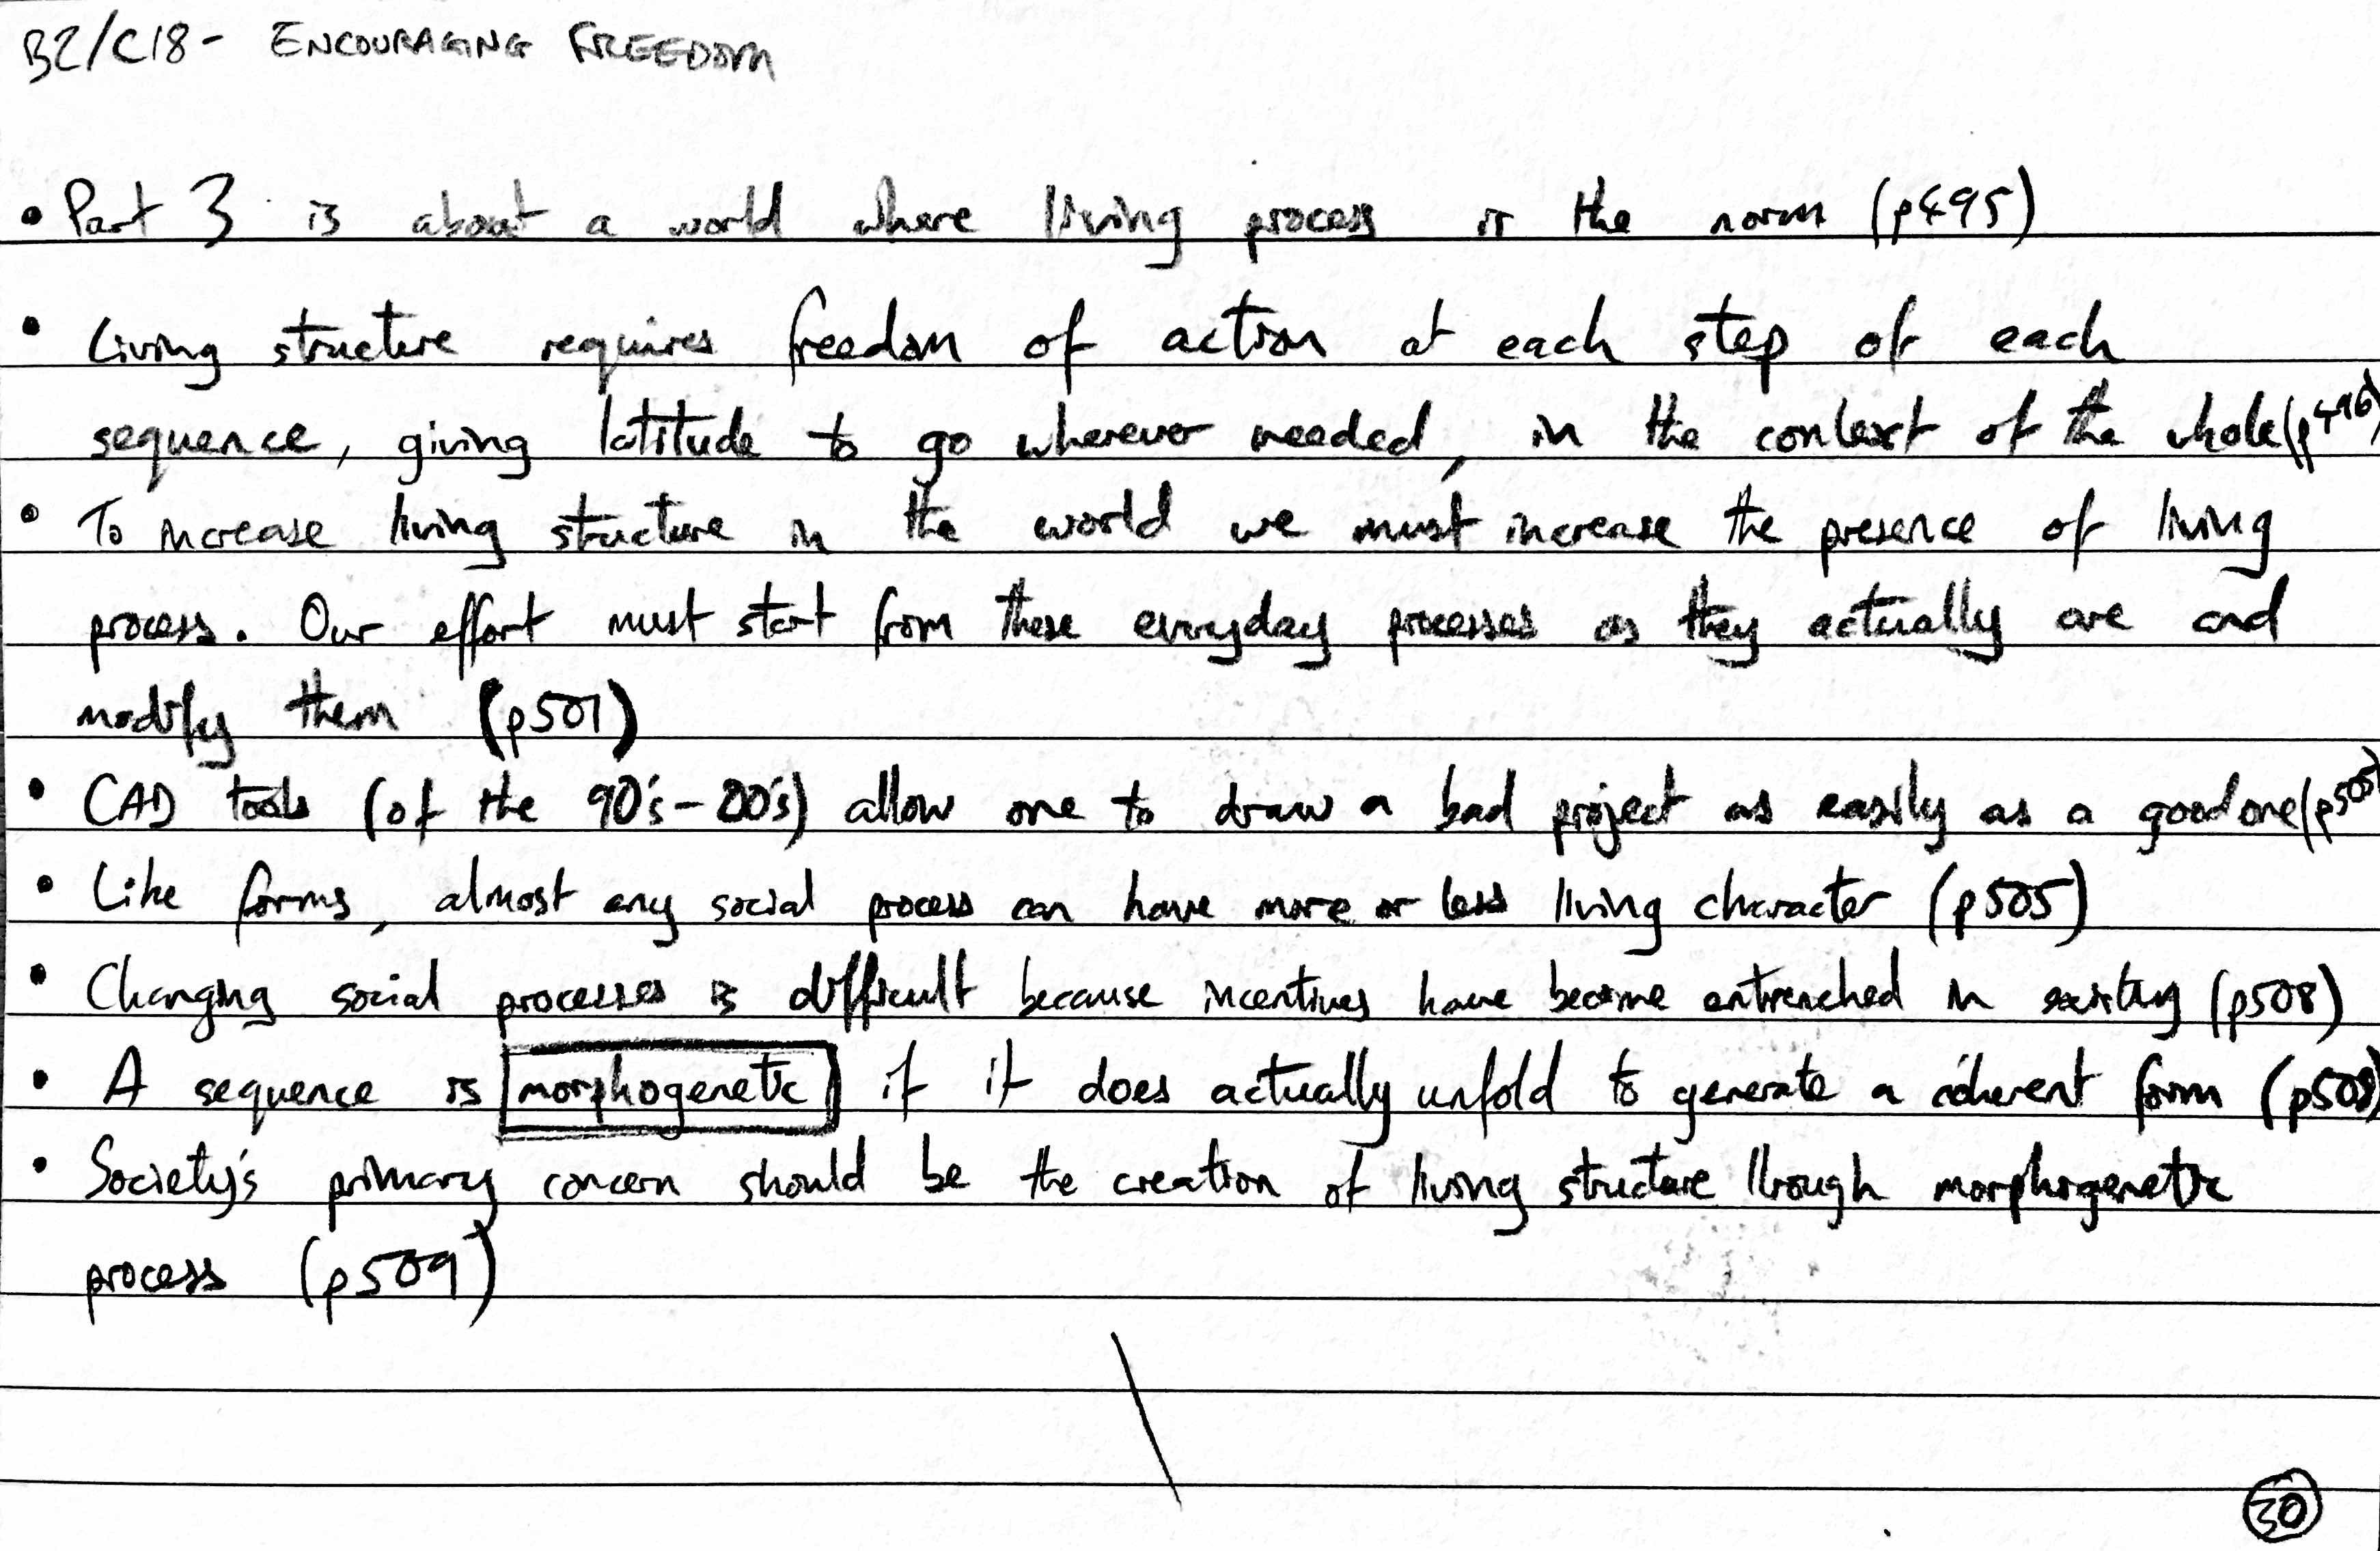 B2/C18 - ENCOURAGING FREEDOM
• Part 3 is about a world where living process is the norm (p495)
• Living structure requires freedom of action at each step of each
sequence, giving latitude to go wherever needed, in the context of the whole (p496)
• To increase living structure in the world we must increase the presence of living
process. Our effort must start from these everyday processes as they actually are and
modify them (p501)
• CAD tools (of the 90's-00's) allow one to draw a bad project as easily as a good one (p505)
• Like forms, almost any social process can have more or less living character (p505)
• Changing social processes is difficult because incentives have become entrenched in existing (p508)
• A sequence is morphogenetic if it does actually unfold to generate a coherent form (p508)
• Society's primary concern should be the creation of living structure through morphogenetic
process (p509)
30